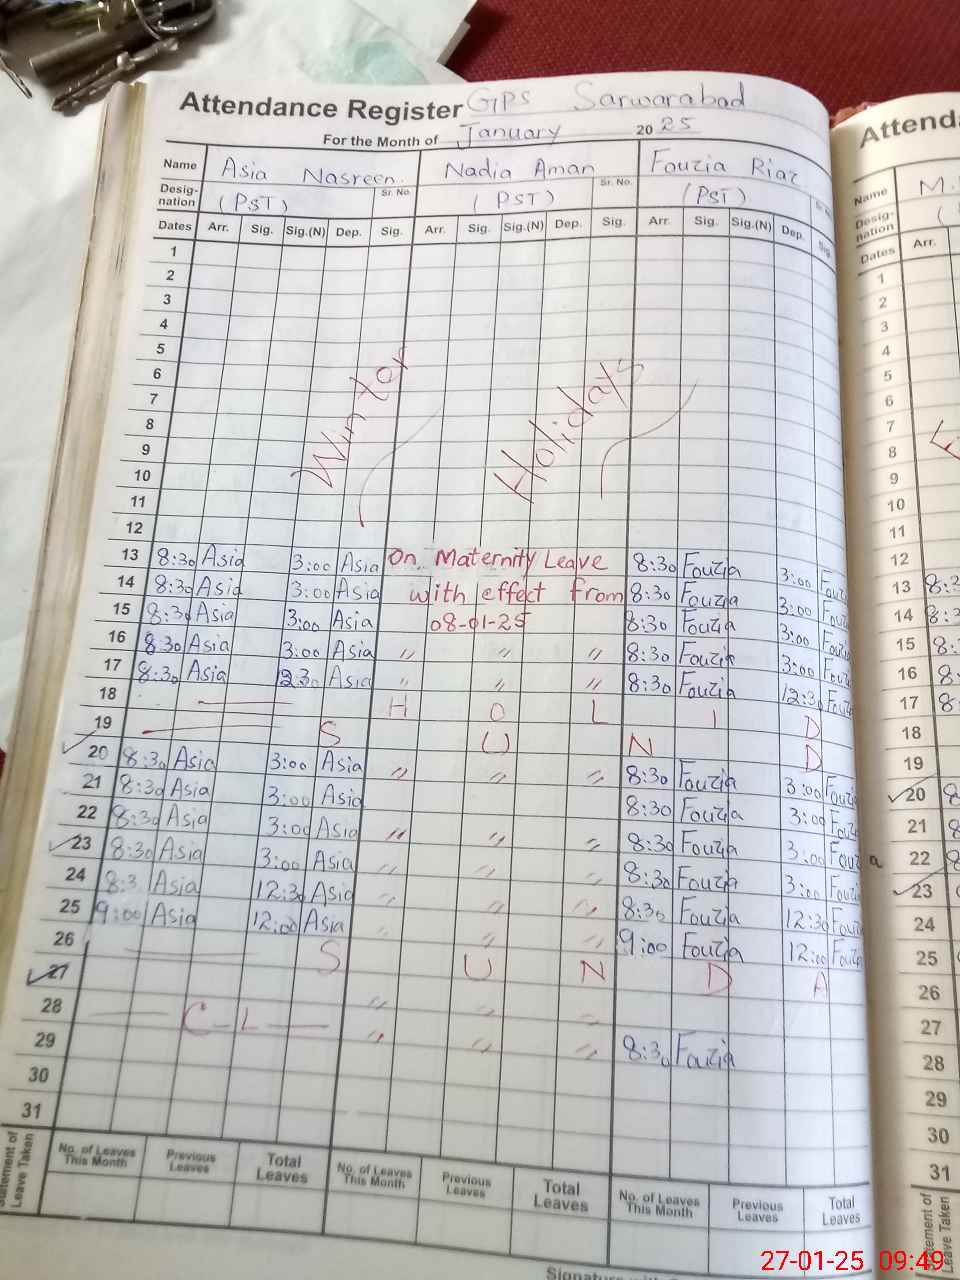 Attendance Register GPS Sarwarabad
For the Month of January 2025
Name Asia Nasreen Nadia Aman Fouzia Riaz
Desig-nation (PST) Sr. No. (PST) Sr. No. (PST)
Dates Arr. Sig. Sig.(N) Dep. Sig. Arr. Sig. Sig.(N) Dep. Sig. Arr. Sig. Sig.(N) Dep. Sig.
1
2
3
4
5
6
7
8
9
10
11
12
Winter Holidays
13 8:30 Asia 3:00 Asia On Maternity Leave 8:30 Fouzia 3:00 Fouzi
14 8:30 Asia 3:00 Asia with effect from 8:30 Fouzia 3:00 Fouz
15 8:30 Asia 3:00 Asia 08-01-25 8:30 Fouzia 3:00 Fouz
16 8:30 Asia 3:00 Asia " " " 8:30 Fouzia 3:00 Fouz
17 8:30 Asia 12:30 Asia " " " 8:30 Fouzia 12:30 Fouz
18 H O L I D
19 S U N D
20 8:30 Asia 3:00 Asia " " " 8:30 Fouzia 3:00 Fouzi
21 8:30 Asia 3:00 Asia 8:30 Fouzia 3:00 Fouz
22 8:30 Asia 3:00 Asia " " " 8:30 Fouzia 3:00 Fouz a
23 8:30 Asia 3:00 Asia " " " 8:30 Fouzia 3:00 Fouz
24 8:3 Asia 12:30 Asia " " " 8:30 Fouzia 12:30 Fouz
25 9:00 Asia 12:00 Asia " " " 9:00 Fouzia 12:00 Fouzi
26 S U N D A
27 C-L " " " 8:30 Fouzia
28
29
30
31
Statement of Leave Taken
No. of Leaves This Month Previous Leaves Total Leaves No. of Leaves This Month Previous Leaves Total Leaves No. of Leaves This Month Previous Leaves Total Leaves
Attenda
Name M.
Desig-nation (
Dates Arr.
1
2
3
4
5
6
7
8
9
10
11
12
13 8:3
14 8:3
15 8:
16 8
17 8
18
19
20 8
21 8
22 8
23
24
25
26
27
28
29
30
31
Statement of Leave Taken
27-01-25 09:49